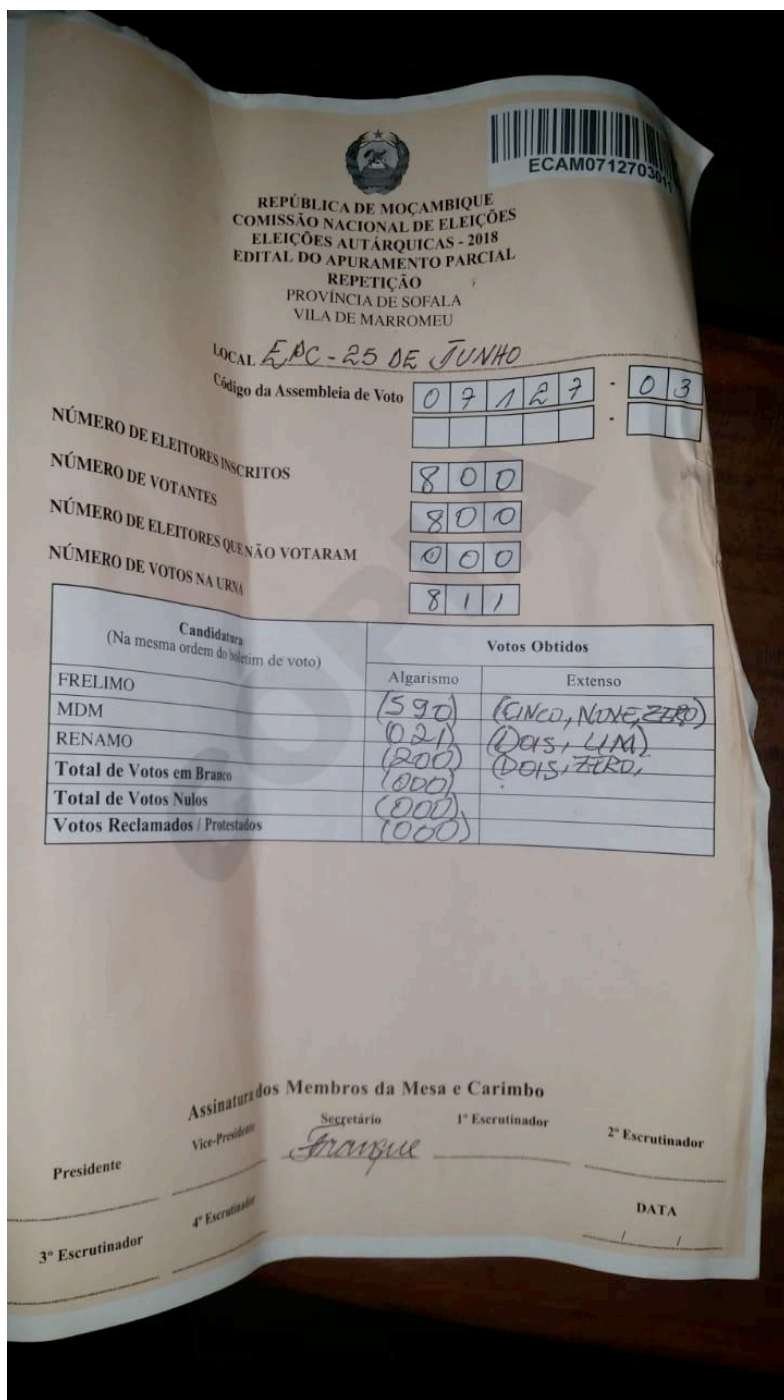 ECAM0712703011
REPÚBLICA DE MOÇAMBIQUE
COMISSÃO NACIONAL DE ELEIÇÕES
ELEIÇÕES AUTÁRQUICAS - 2018
EDITAL DO APURAMENTO PARCIAL
REPETIÇÃO
PROVÍNCIA DE SOFALA
VILA DE MARROMEU
LOCAL EPC - 25 DE JUNHO
Código da Assembleia de Voto 07127 - 03
NÚMERO DE ELEITORES INSCRITOS 800
NÚMERO DE VOTANTES 800
NÚMERO DE ELEITORES QUE NÃO VOTARAM 000
NÚMERO DE VOTOS NA URNA 811
Candidatura
(Na mesma ordem do boletim de voto)
Votos Obtidos
Algarismo Extenso
FRELIMO (590) (CINCO, NOVE, ZERO)
MDM (021) (DOIS, UM)
RENAMO (200) (DOIS, ZERO,
Total de Votos em Branco (000)
Total de Votos Nulos (000)
Votos Reclamados / Protestados (000)
CÓPIA
Assinatura dos Membros da Mesa e Carimbo
Presidente Vice-Presidente Secretário 1º Escrutinador 2º Escrutinador
3º Escrutinador 4º Escrutinador DATA
/ /